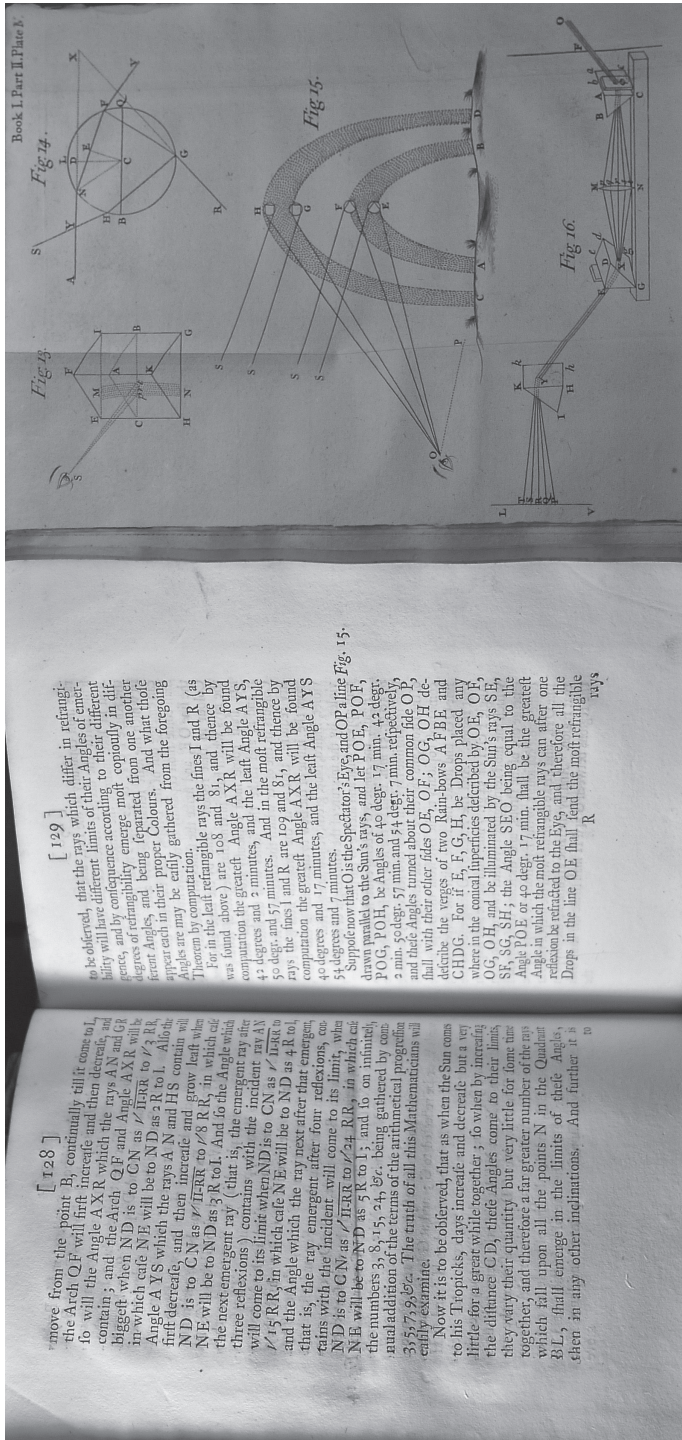 [128]
move from the point B, continually till it come to L,
the Arch QF will first increase and then decrease, and
so will the Angle AXR which the rays AN and GR
contain; and the Arch QF and Angle AXR will be
biggest when ND is to CN as √II-RR to √3 RR,
in which case NE will be to ND as 2R to I. Also the
Angle AYS which the rays AN and HS contain will
first decrease, and then increase and grow least when
ND is to CN as √II-RR to √8 RR, in which case
NE will be to ND as 3R to I. And so the Angle which
the next emergent ray (that is, the emergent ray after
three reflexions) contains with the incident ray AN
will come to its limit when ND is to CN as √II-RR to
√15 RR, in which case NE will be to ND as 4R to I,
and the Angle which the ray next after that emergent,
that is, the ray emergent after four reflexions, con-
tains with the incident will come to its limit, when
ND is to CN as √II-RR to √24 RR, in which case
NE will be to ND as 5R to I; and so on infinitely,
the numbers 3, 8, 15, 24, &c. being gathered by conti-
nual addition of the terms of the arithmetical progression
3, 5, 7, 9, &c. The truth of all this Mathematicians will
easily examine.
Now it is to be observed, that as when the Sun comes
to his Tropicks, days increase and decrease but a very
little for a great while together; so when by increasing
the distance CD, these Angles come to their limits,
they vary their quantity but very little for some time
together, and therefore a far greater number of the rays
which fall upon all the points N in the Quadrant
BL, shall emerge in the limits of these Angles,
then in any other inclinations. And further it is
to
[129]
to be observed, that the rays which differ in refrangi-
bility will have different limits of their Angles of emer-
gence, and by consequence according to their different
degrees of refrangibility emerge most copiously in dif-
ferent Angles, and being separated from one another
appear each in their proper Colours. And what those
Angles are may be easily gathered from the foregoing
Theorem by computation.
For in the least refrangible rays the sines I and R (as
was found above) are 108 and 81, and thence by
computation the greatest Angle AXR will be found
42 degrees and 2 minutes, and the least Angle AYS,
50 degr. and 57 minutes. And in the most refrangible
rays the sines I and R are 109 and 81, and thence by
computation the greatest Angle AXR will be found
40 degrees and 17 minutes, and the least Angle AYS
54 degrees and 7 minutes.
Suppose now that O is the Spectator's Eye, and OP a line Fig. 15.
drawn parallel to the Sun's rays, and let POE, POF,
POG, POH, be Angles of 40 degr. 17 min. 42 degr.
2 min. 50 degr. 57 min. and 54 degr. 7 min. respectively,
and these Angles turned about their common side OP,
shall with their other sides OE, OF; OG, OH de-
scribe the verges of two Rain-bows AFBE and
CHDG. For if E, F, G, H, be Drops placed any
where in the conical superficies described by OE, OF,
OG, OH, and be illuminated by the Sun's rays SE,
SF, SG, SH; the Angle SEO being equal to the
Angle POE or 40 degr. 17 min. shall be the greatest
Angle in which the most refrangible rays can after one
reflexion be refracted to the Eye, and therefore all the
Drops in the line OE shall send the most refrangible
R rays
Book I. Part II. Plate
Fig. 13.
S
E
F
I
M
A
C
B
K
H
N
G
Fig. 14.
S
A
Y
L
D
X
N
E
F
V
H
B
C
Q
G
R
Fig 15.
H
G
F
E
S
S
S
S
C
A
B
D
O
P
Fig 16.
L
V
K
k
Y
I
H
h
D
G
M
N
B
A
C
F
O